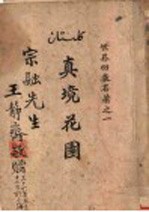 世界回教名著之一
گلستان
真境花園
宗融先生
王靜齋敬贈